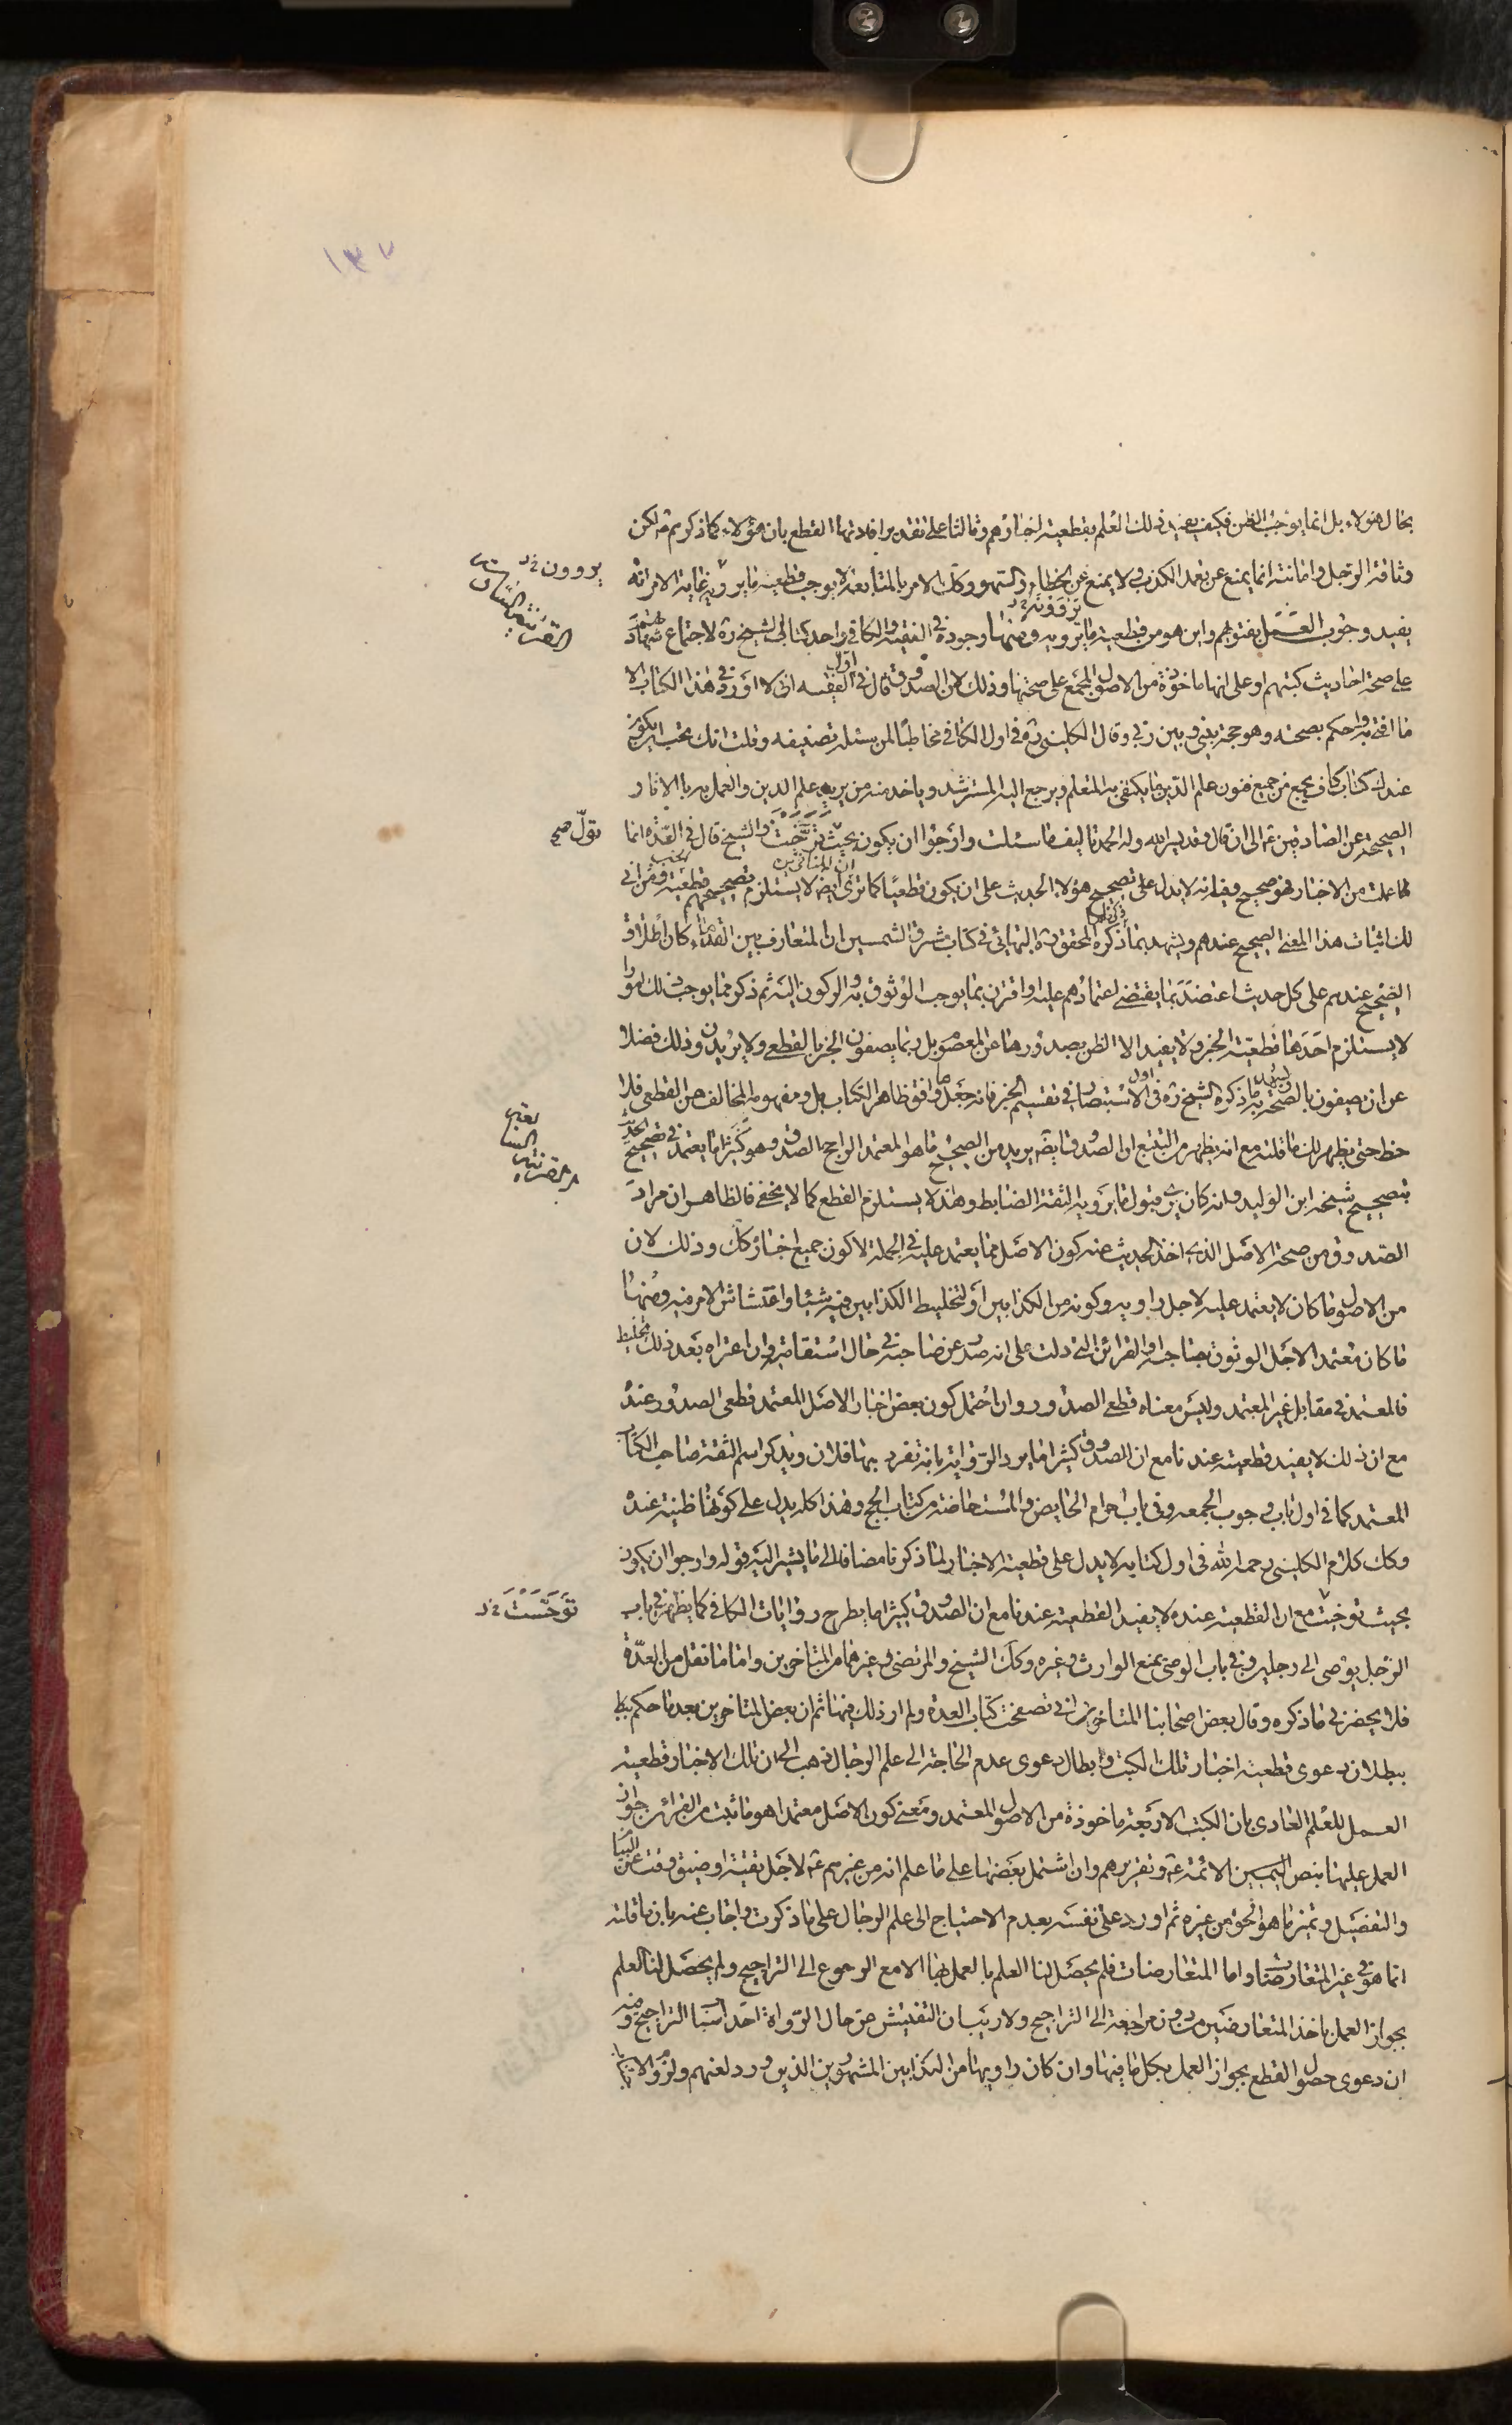 ١٣٧
بحال هؤلاء بل انما يوجب الظن فكيف يفيد ذلك العلم بقطعية اخبارهم وثالثا على تقدير افادتها القطع بان هؤلاء كما ذكرتم لكن
وثاقة الرجل وامانته انما يمنع عن تعمد الكذب ولا يمنع عن الخطاء والسهو وكك الامر بالمتابعة لا يوجب قطعية ما يروونه غاية الامر انه
يروون خ د
يفيد وجوب العمل بفتويهم واين هو من قطعية ما يرويه ومنها وجوده في الفقيه والكافي واحد كتابي الشيخ ره لاجتماع شهادتهم
يروونه خ د
القرينة الثالثة
على صحة احاديث كتبهم او على انها ماخوذة من الاصول المجمع على صحتها وذلك لان الصدوق قال في اول الفقيه انى لا اورد في هذا الكتاب الا
ما افتى به واحكم بصحته وهو حجة بينى وبين ربى وقال الكلينى ره في اول الكافي مخاطبا لمن سئله تصنيفه وقلت انك تحب ان يكون
عندك كتاب كاف يجمع من جميع فنون علم الدين ما يكتفى به المتعلم ويرجع اليه المسترشد وياخذ منه من يريد علم الدين والعمل به بالاثار
الصحيحة عن الصادقين ع الى ان قال وقد يسر الله وله الحمد تاليف ما سئلت وارجوا ان يكون بحيث توخيت والشيخ قال في العدة انما
نقول صح
عملت من الاخبار فهو صحيح وفيه انه لا يدل على تصحيح هؤلاء الحديث على ان يكون قطعيا كما ترى ايضا لا يستلزم تصحيحهم قطعيته ومن اين
لك اثبات هذا المعنى الصحيح عندهم ويشهد بما ذكره المحقق البهائي في كتاب مشرق الشمسين ان المتعارف بين القدماء كان اطلاق
الصحيح عندهم على كل حديث اعتضد بما يقتضى اعتمادهم عليه او اقترن بما يوجب الوثوق به والركون اليه ثم ذكر مما يوجب ذلك امورا
لا يستلزم احدها قطعية الخبر ولا يفيد الا الظن بصدورها عن المعصوم بل ربما يصفون الخبر بالقطعى ولا يريدون ذلك فضلا
عن ان يصفون بالصحة ويشهد به ما ذكره الشيخ ره في اول الاستبصار في تقسيم الخبر فانه جعل ما وافق ظاهر الكتاب بل ومفهومه المخالف من القطعى فلا
حظ حتى يظهر لك ما قلته مع انه يظهر من التتبع ان الصدوق ايضا يريد من الصحيح ما هو المعتمد الراجح الصدق وهو كثيرا ما يعتمد في تصحيح الحديث
بتصحيح شيخه ابن الوليد وانه كان يرى قبول ما يرويه الثقة الضابط وهذا لا يستلزم القطع كما لا يخفى فالظاهر ان مراد
الصدوق من صحة الاصل الذي اخذ الحديث منه كون الاصل مما يعتمد عليه في الجملة لا كون جميع اخباره كك وذلك لان
من الاصول ما كان لا يعتمد عليه لاجل راويه وكونه من الكذابين او لتخليط الكذابين فيه شيئا واغتشاش الامر فيه ومنها
ما كان معتمدا لاجل الوثوق بصاحبه والقرائن التى دلت على انه صدر عن صاحبه في حال استقامته وان اعتراه بعد ذلك تخليط
فالمعتمد في مقابل غير المعتمد وليس معناه قطعى الصدور وان احتمل كون بعض اخبار الاصل المعتمد قطعى الصدور عنده
مع ان ذلك لا يفيد قطعيته عندنا مع ان الصدوق كثيرا ما يرد الرواية بانه تفرد بها فلان ويذكر اسم الثقة صاحب الكتاب
المعتمد كما في اول باب وجوب الجمعه وفى باب احرام الحايض والمستحاضة من كتاب الحج وهذا كله يدل على كونها ظنية عنده
وكك كلام الكلينى رحمه الله في اول كتابه لا يدل على قطعية الاخبار لما ذكرنا مضافا الى ما يشير اليه قوله وارجوا ان يكون
بحيث توخيت مع ان القطعية عنده لا يفيد القطعية عندنا مع ان الصدوق كثيرا ما يطرح روايات الكافي كما يظهر في باب
توخيت خ د
الرجل يوصى الى رجلين وفي باب الوصى يمنع الوارث وغيره وكك الشيخ والمرتضى وغيرهما من المتاخرين واما ما نقل من العدة
فلا يحضرنى ما ذكره وقال بعض اصحابنا المتاخرين انى تصفحت كتاب العدة ولم ار ذلك فيها ثم ان بعض المتاخرين بعد ما حكم
ببطلان دعوى قطعية اخبار تلك الكتب وابطال دعوى عدم الحاجة الى علم الرجال ذهب الى ان تلك الاخبار قطعية
العمل للعلم العادى بان الكتب الاربعة ماخوذة من الاصول المعتمد ومعنى كون الاصل معتمدا هو ما ثبت من القرائن جواز
العمل عليها بنص الائمة ع وتقريرهم وان اشتمل بعضها على ما علم انه من غيرهم ع لاجل تقية او ضيق وقت عن البيان
والتفصيل وتميز ما هو الحق من غيره ثم اورد على نفسه بعدم الاحتياج الى علم الرجال على ما ذكرت واجاب عنه بان ما قلته
انما هو في غير المتعارضات واما المتعارضات فلم يحصل لنا العلم بالعمل بها الا مع الرجوع الى التراجيح ولم يحصل لنا العلم
بجواز العمل باخذ المتعارضين من دون مراجعة الى التراجيح ولا ريب ان التفتيش من حال الرواة احد اسباب التراجيح وفيه
ان دعوى حصول القطع بجواز العمل بكل ما فيها وان كان راويها من الكذابين المشهورين الذين ورد لعنهم ولزوم الاجتناب